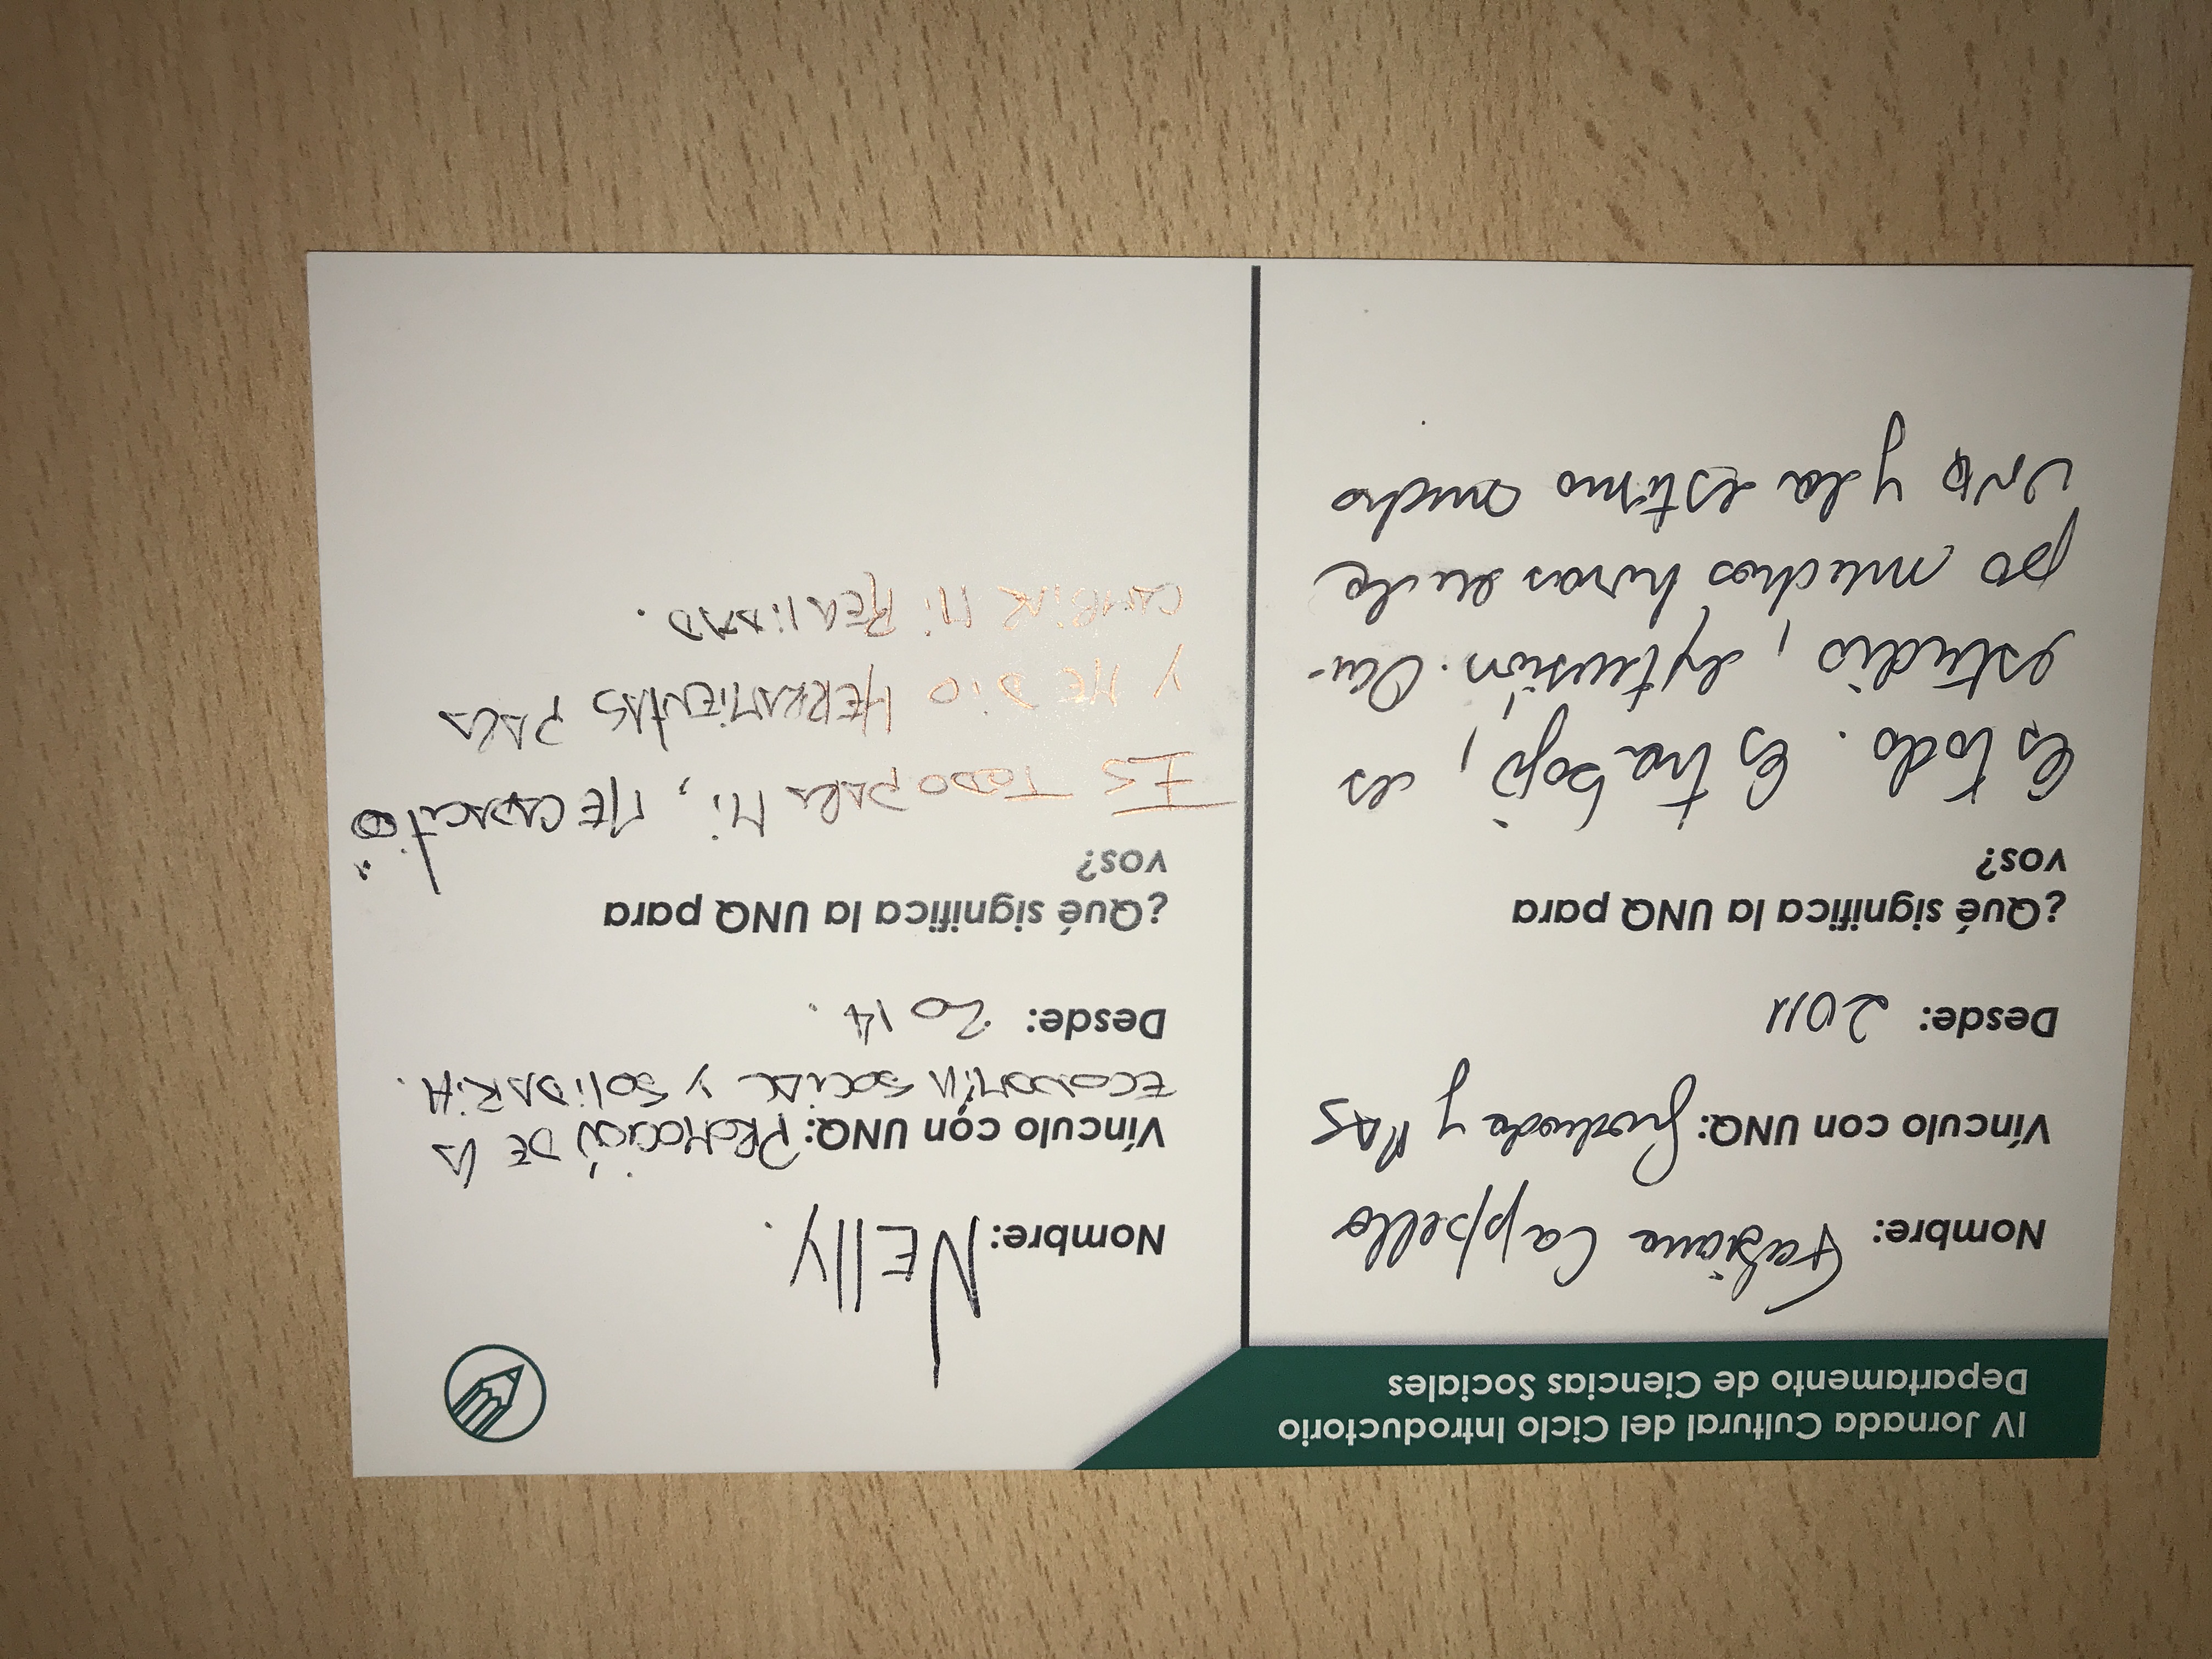 IV Jornada Cultural del Ciclo Introductorio
Departamento de Ciencias Sociales
Nombre: Fabiana Cappello
Vínculo con UNQ: Graduada y PAS
Desde: 2011
¿Qué significa la UNQ para
vos?
Es todo. Es trabajo, es
estudio, extensión. Ocu-
po muchas horas en la
UNQ y la estimo mucho
Nombre: NELLY.
Vínculo con UNQ: PROMOCIÓN DE LA
ECONOMÍA SOCIAL Y SOLIDARIA.
Desde: 2014.
¿Qué significa la UNQ para
vos?
ES TODO PARA MI, ME CAPACITÓ
Y ME DIO HERRAMIENTAS PARA
CAMBIAR MI REALIDAD.